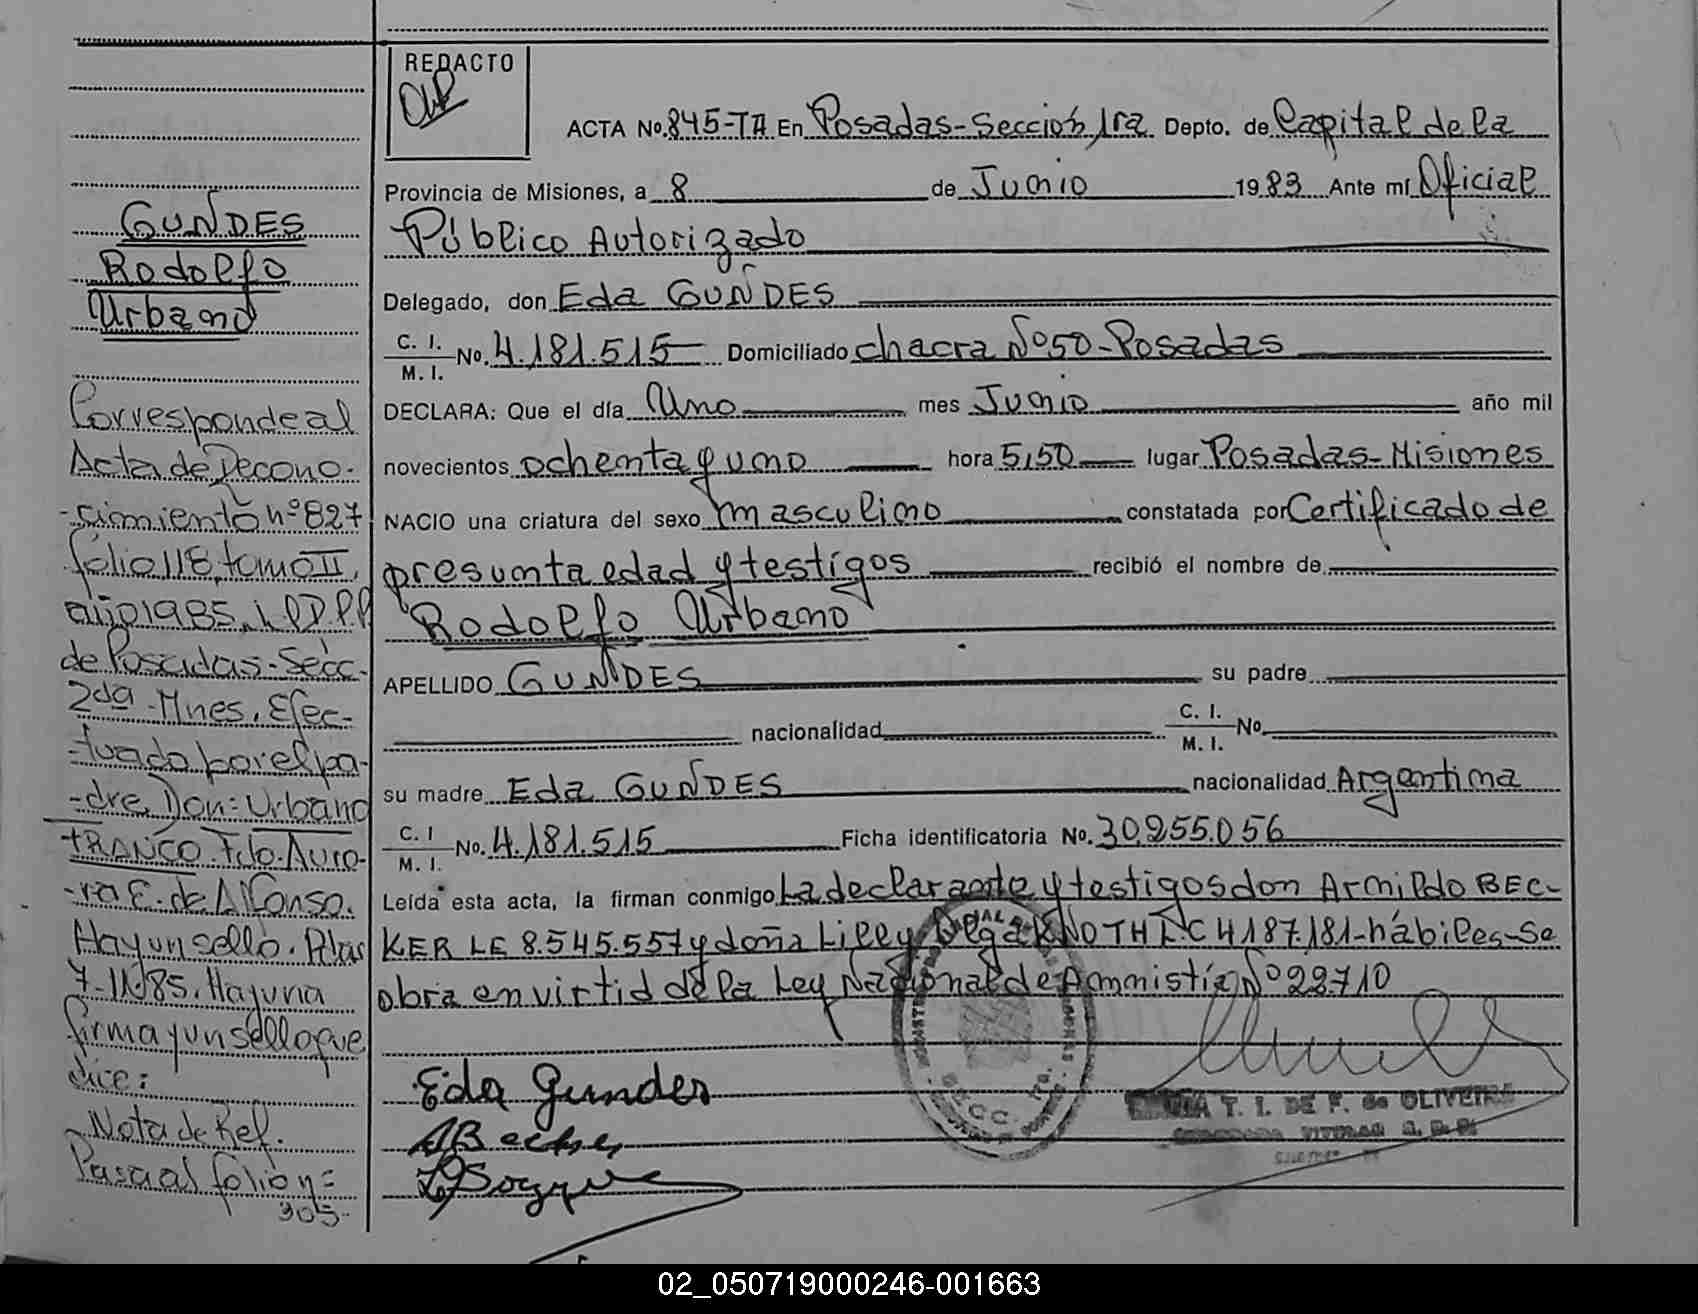 REDACTO
ACTA No. 845-TA En Posadas-Sección 1ra Depto. de Capital de la
Provincia de Misiones, a 8 de Junio 1983 Ante mí Oficial
Público Autorizado
Delegado, don Eda GUÑDES
C. I.
M. I. No. 4.181.515 Domiciliado chacra Nº50-Posadas
DECLARA: Que el día Uno mes Junio año mil
novecientos ochenta y uno hora 5,50 lugar Posadas-Misiones
NACIO una criatura del sexo masculino constatada por Certificado de
presunta edad y testigos recibió el nombre de
Rodolfo Urbano
APELLIDO GUÑDES su padre
nacionalidad C. I.
M. I. No.
su madre Eda GUÑDES nacionalidad Argentina
C. I
M. I. No. 4.181.515 Ficha identificatoria No. 30.255.056
Leída esta acta, la firman conmigo La declarante y testigos don Armildo BEC-
KER LE 8.545.557 y doña Lilly KNOTH LC 4187.181-hábiles-Se
obra en virtid de la Ley Nacional de Amnistía Nº 22.710
Eda Gundes
ABecker
T. I. DE F. de OLIVEIRA
GUÑDES
Rodolfo
Urbano
Corresponde al
Acta de Recono-
-cimiento nº 827
folio 118, tomo II,
año 1985, del R.P.P.
de Posadas-Secc-
2da-Mnes. Efec-
-tuado por el pa-
-dre, Don: Urbano
FRANCO. Fdo. Auro-
-ra E. de Alfonso.
Hay un sello. Pdas
7-11-85. Hay una
firma y un sello que
dice:
Nota de Ref.
Pasa al folio nº
305-
02_050719000246-001663